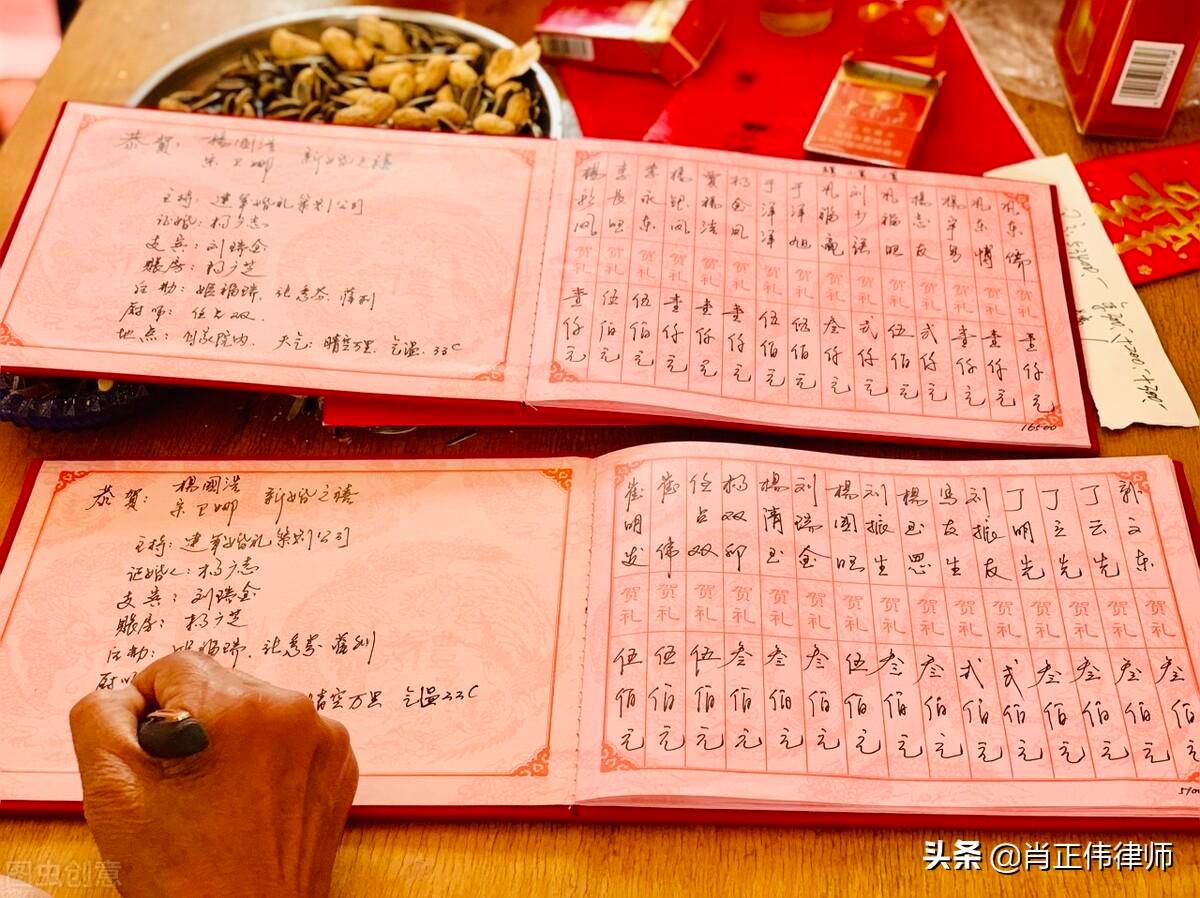 恭贺：楊國浩
宋卫娜 新婚之禧
主持：建军婚礼策划公司
证婚：杨广志
支宾：刘瑞金
账房：杨广芝
姬福瑞、张秀芬、薛利
厨师：任占双.
地点：付家院内. 天气：晴空万里. 气温.33C
东伟 贺礼 壹仟元
东博 贺礼 壹仟元
楊宇 贺礼 壹仟元
楊志友 贺礼 弍仟元
福旺 贺礼 伍佰元
刘少强 贺礼 弍仟元
福亮 贺礼 叁仟元
于洋旭 贺礼 伍佰元
于洋洋 贺礼 伍佰元
杨金凤 贺礼 壹仟元
福洁 贺礼 壹仟元
楊银凤 贺礼 壹仟元
李永东 贺礼 伍佰元
李長旺 贺礼 伍佰元
楊彩凤 贺礼 壹仟元
16500
恭贺：楊國浩
宋卫娜 新婚之禧
主持：建军婚礼策划公司
证婚人：杨广志
支宾：刘瑞金
账房：杨广芝
姬福瑞、张秀芬、薛利
厨
晴空万里 气温33C
郭文东 贺礼 叁佰元
丁云先 贺礼 叁佰元
丁立先 贺礼 叁佰元
丁明先 贺礼 叁佰元
刘振友 贺礼 弍佰元
冯友生 贺礼 弍佰元
楊玉恩 贺礼 叁佰元
刘振生 贺礼 叁佰元
楊国旺 贺礼 伍佰元
刘瑞金 贺礼 叁佰元
楊清玉 贺礼 叁佰元
杨双印 贺礼 叁佰元
任占双 贺礼 伍佰元
崔伟 贺礼 伍佰元
崔明发 贺礼 伍佰元
5100
图虫创意
头条 @肖正伟律师